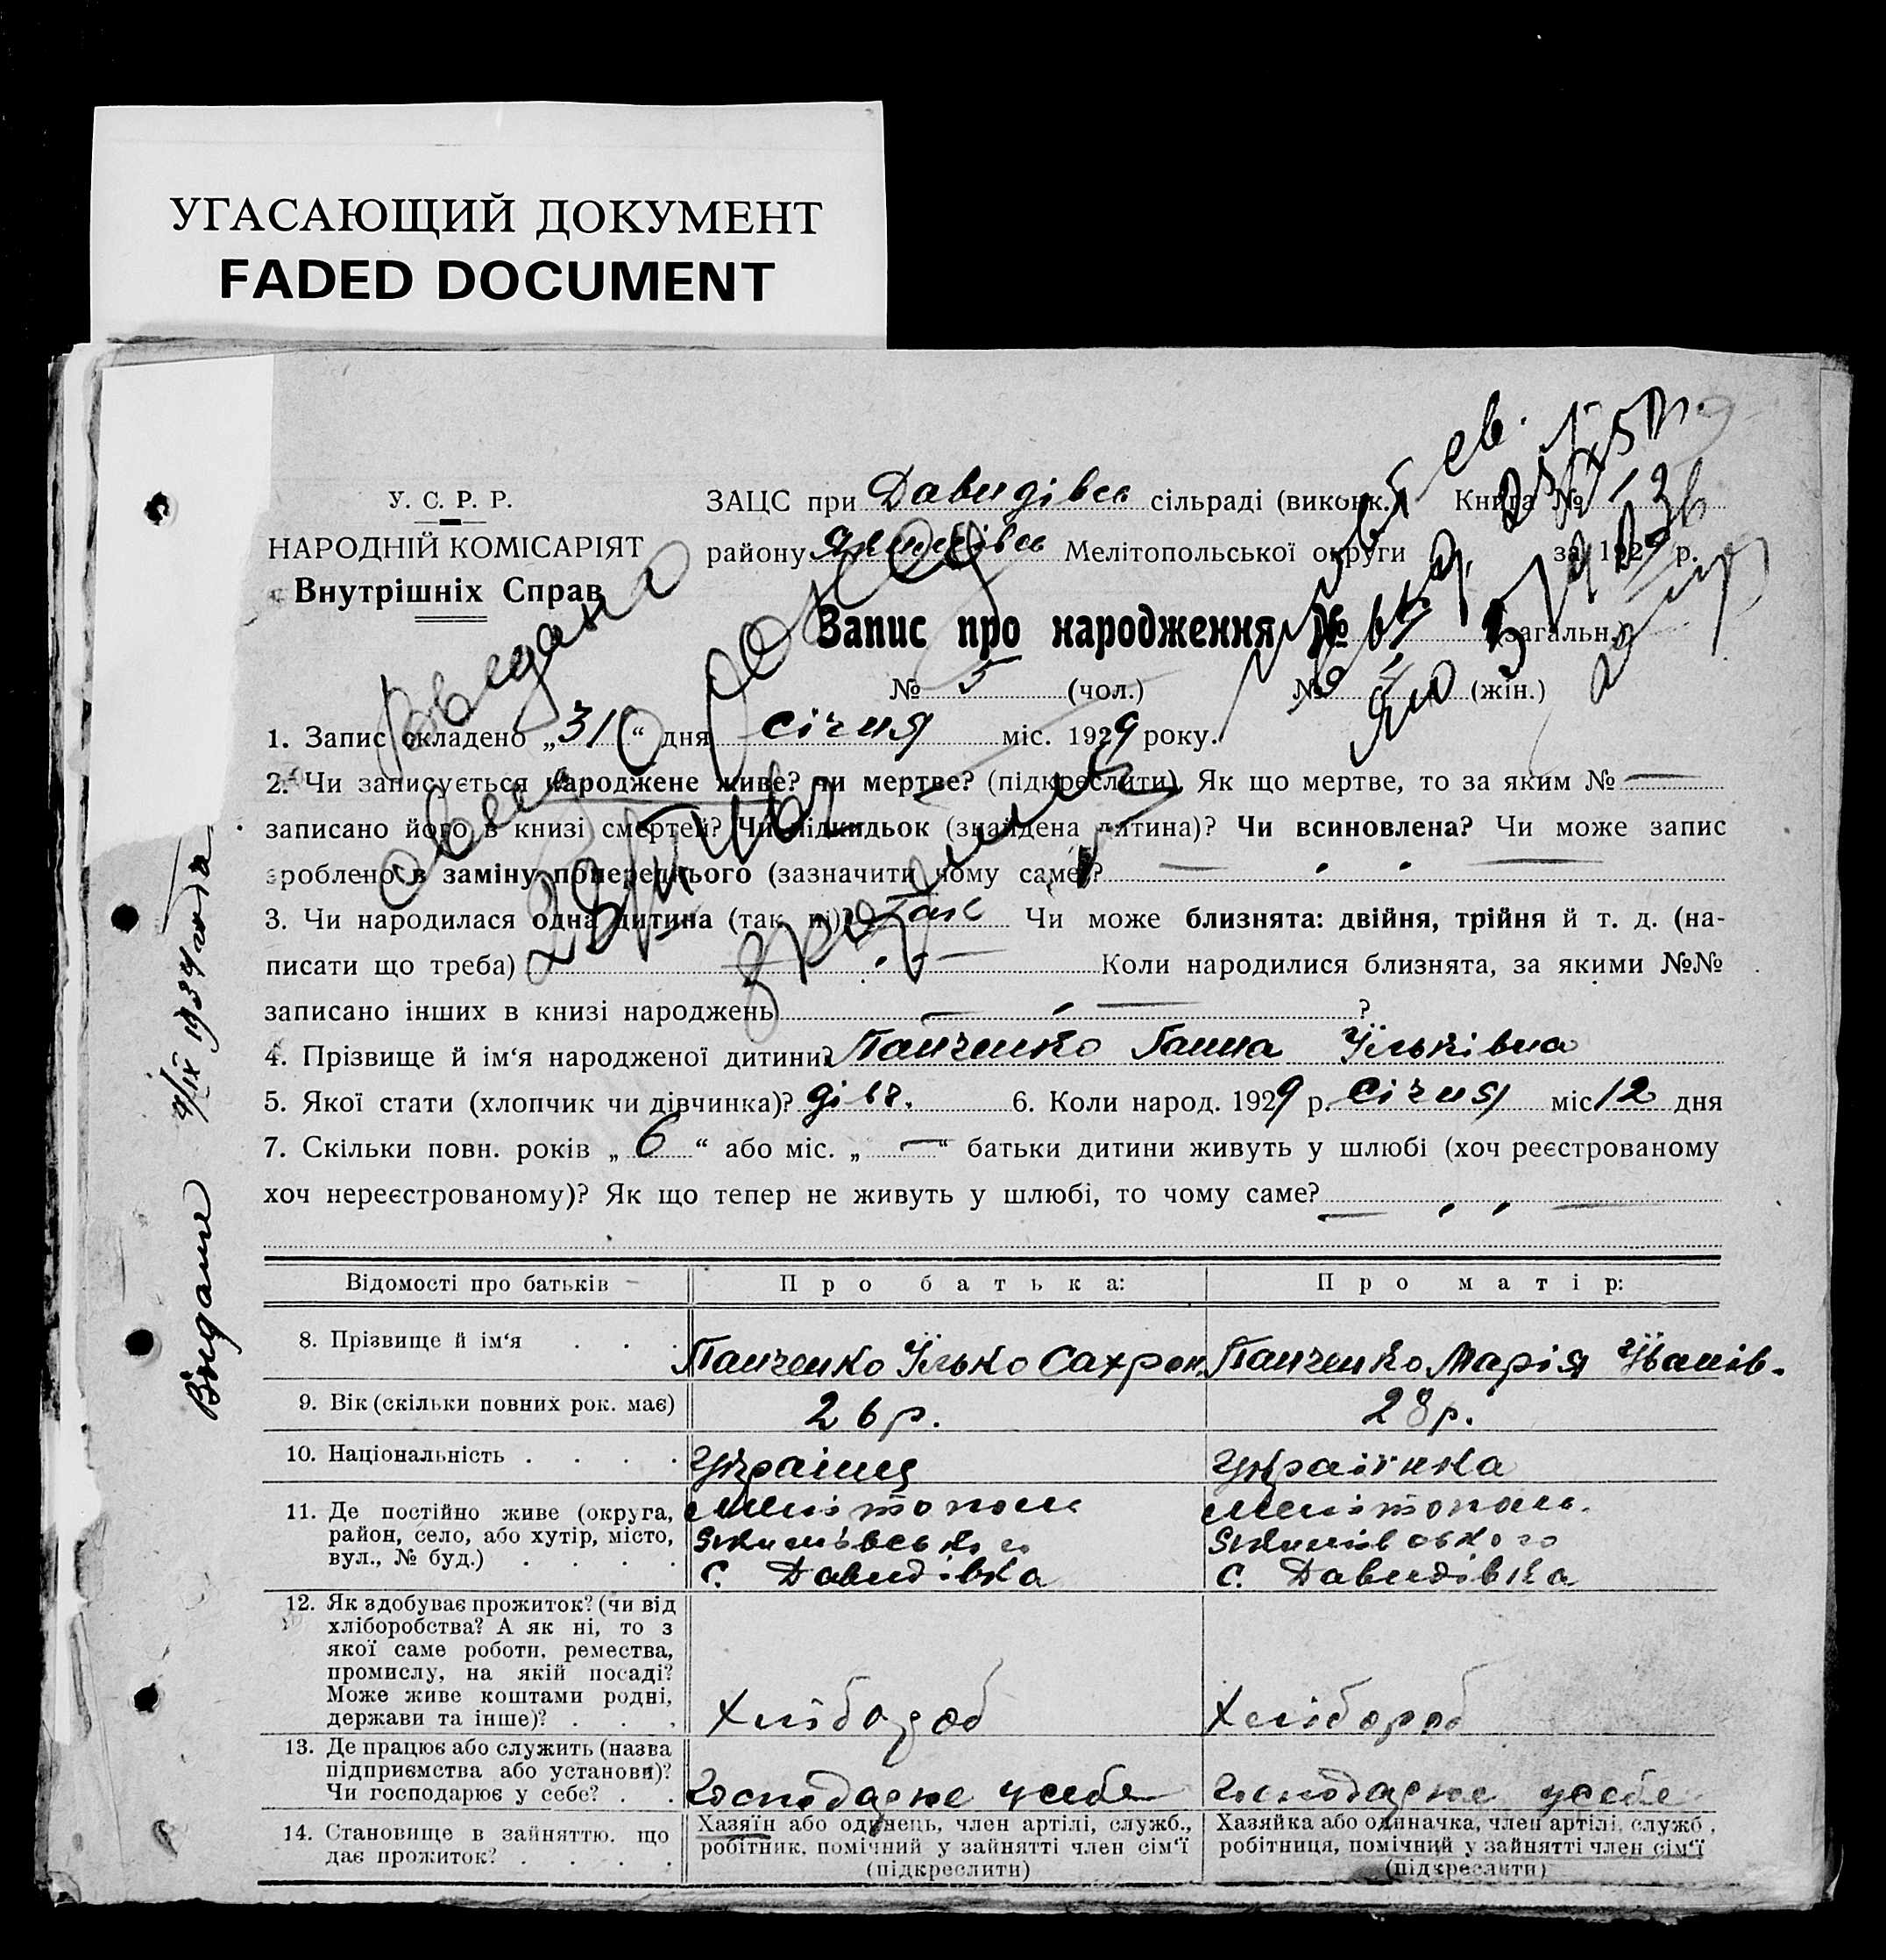 УГАСАЮЩИЙ ДОКУМЕНТ
FADED DOCUMENT
У. С. Р. Р.
НАРОДНІЙ КОМІСАРІЯТ
Внутрішніх Справ
ЗАЦС при Давидівсь сільраді (виконк.) Книга №
району Якимівсь Мелітопольської округи за 1929 р.
Запис про народження № (загальн.)
№ 5 (чол.) № (жін.)
1. Запис складено „31“ дня січня міс. 1929 року.
2. Чи записується народжене живе? чи мертве? (підкреслити). Як що мертве, то за яким № —
записано його в книзі смертей? Чи підкидьок (знайдена дитина)? Чи всиновлена? Чи може запис
зроблено в заміну попереднього (зазначити чому саме)?
3. Чи народилася одна дитина (так, ні)? Так Чи може близнята: двійня, трійня й т. д. (на-
писати що треба) Коли народилися близнята, за якими №№
записано інших в книзі народжень ?
4. Прізвище й ім‘я народженої дитини? Панченко Ганна Їльківна
5. Якої стати (хлопчик чи дівчинка)? дівч. 6. Коли народ. 1929 р. січня міс 12 дня
7. Скільки повн. років „ 6 “ або міс. „ — “ батьки дитини живуть у шлюбі (хоч реєстрованому
хоч нереєстрованому)? Як що тепер не живуть у шлюбі, то чому саме?
Видане 1934 года
Відомості про батьків Про батька: Про матір:
8. Прізвище й ім‘я . . . Панченко Їлько Сахрон. Панченко Марія Їванів.
9. Вік (скільки повних рок. має) 26 р. 28 р.
10. Національність . . . . Українц Українка
11. Де постійно живе (округа, Мелітополь Мелітополь.
район, село, або хутір, місто, Якимівського Якимівського
вул., № буд.) . . . . с. Давидівка с. Давидівка
12. Як здобуває прожиток? (чи від
хліборобства? А як ні, то з
якої саме роботи, ремества,
промислу, на якій посаді?
Може живе коштами родні, Хлібороб Хлібороб
держави та інше)? . . .
13. Де працює або служить (назва
підприємства або установи)?
Чи господарює у себе? . . Господарює у себе Господарює у себе
14. Становище в зайняттю, що Хазяїн або одинець, член артілі, служб., Хазяйка або одиначка, член артілі, служб.,
дає прожиток? . . . . робітник, помічний у зайнятті член сім‘ї робітниця, помічний у зайнятті член сім‘ї
(підкреслити) (підкреслити)